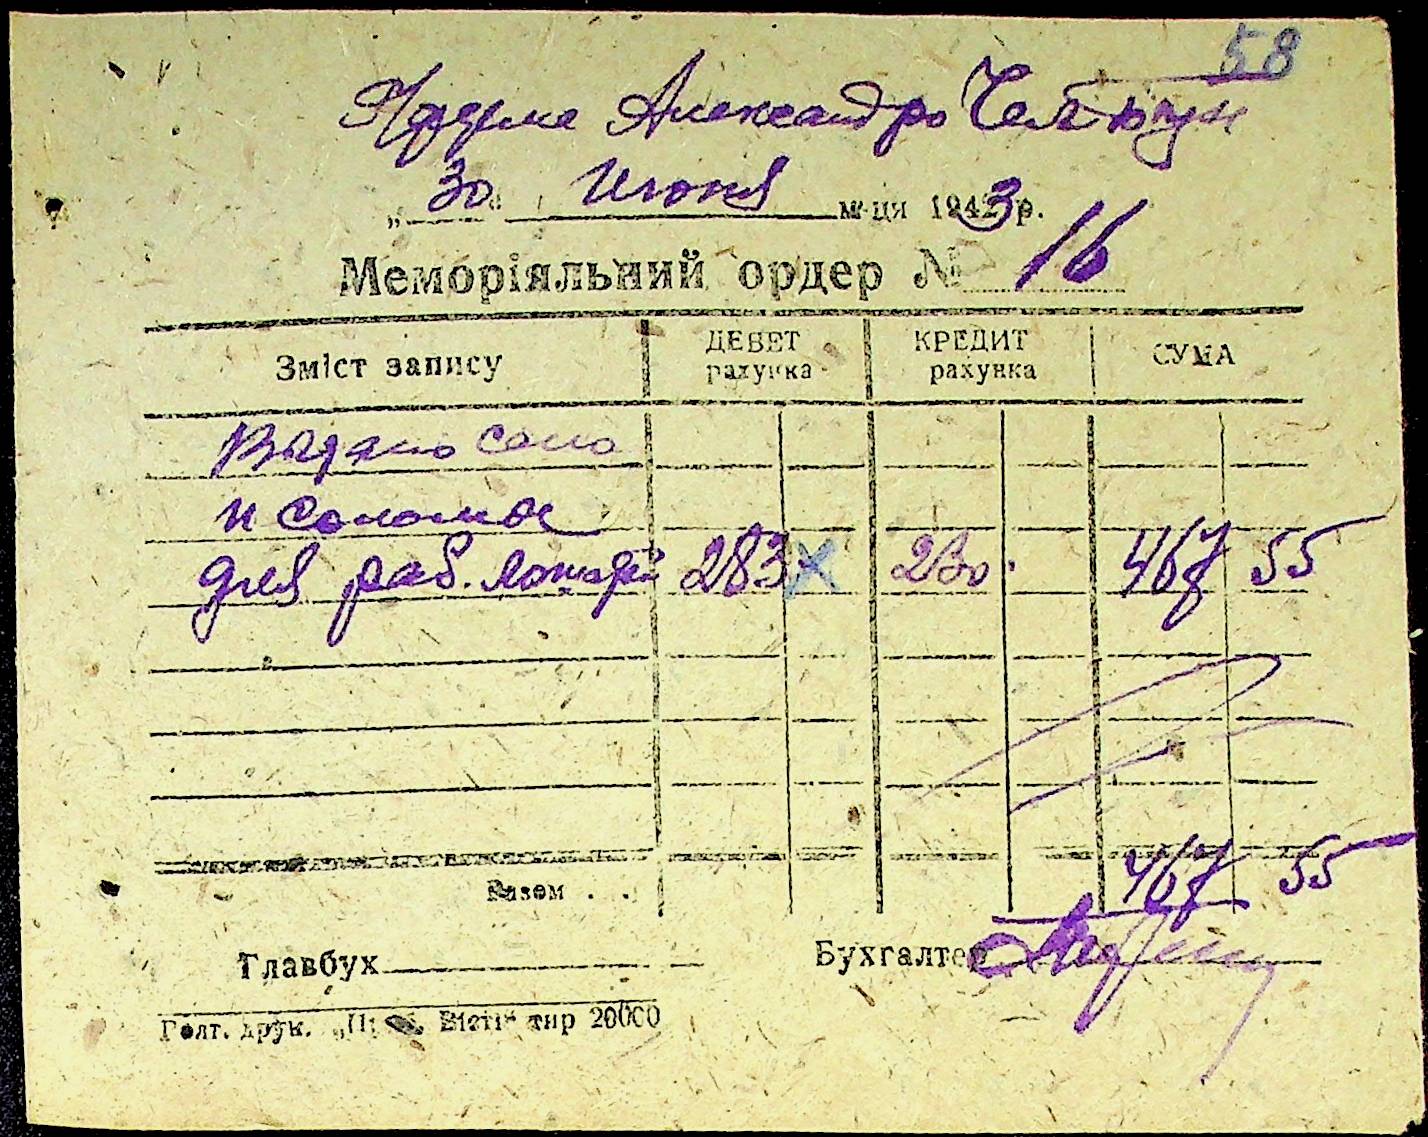 58
Ферме Александро
30 Июня м-ця 1943 р.
Меморіяльний ордер № 16
Зміст запису ДЕБЕТ рахунка КРЕДИТ рахунка СУМА
Выдано сено
и солома
для раб. лошадей 283 х 230. 467 55
Разом . . 467 55
Главбух Бухгалтер
Голт. друк. Вісті" тир 20000